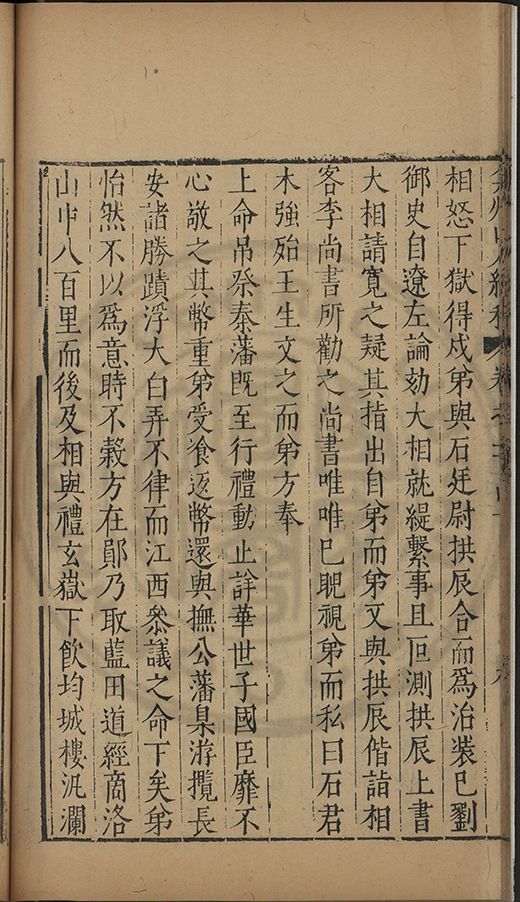 相怒下獄得戍弟與石廷尉拱辰合而爲治裝巳劉
御史自遼左論劾大相就緹繫事且叵測拱辰上書
大相請寬之疑其指出自弟而弟又與拱辰偕詣相
客李尚書所勸之尚書唯唯巳睨視弟而私曰石君
木強殆王生文之而弟方奉
上命吊祭秦藩旣至行禮動止詳華世子國臣靡不
心敬之其幣重弟受飧返幣還與撫公藩臬游攬長
安諸勝蹟浮大白弄不律而江西叅議之命下矣弟
怡然不以爲意時不穀方在鄖乃取藍田道經商洛
山中八百里而後及相與禮玄嶽下飲均城樓汎瀾